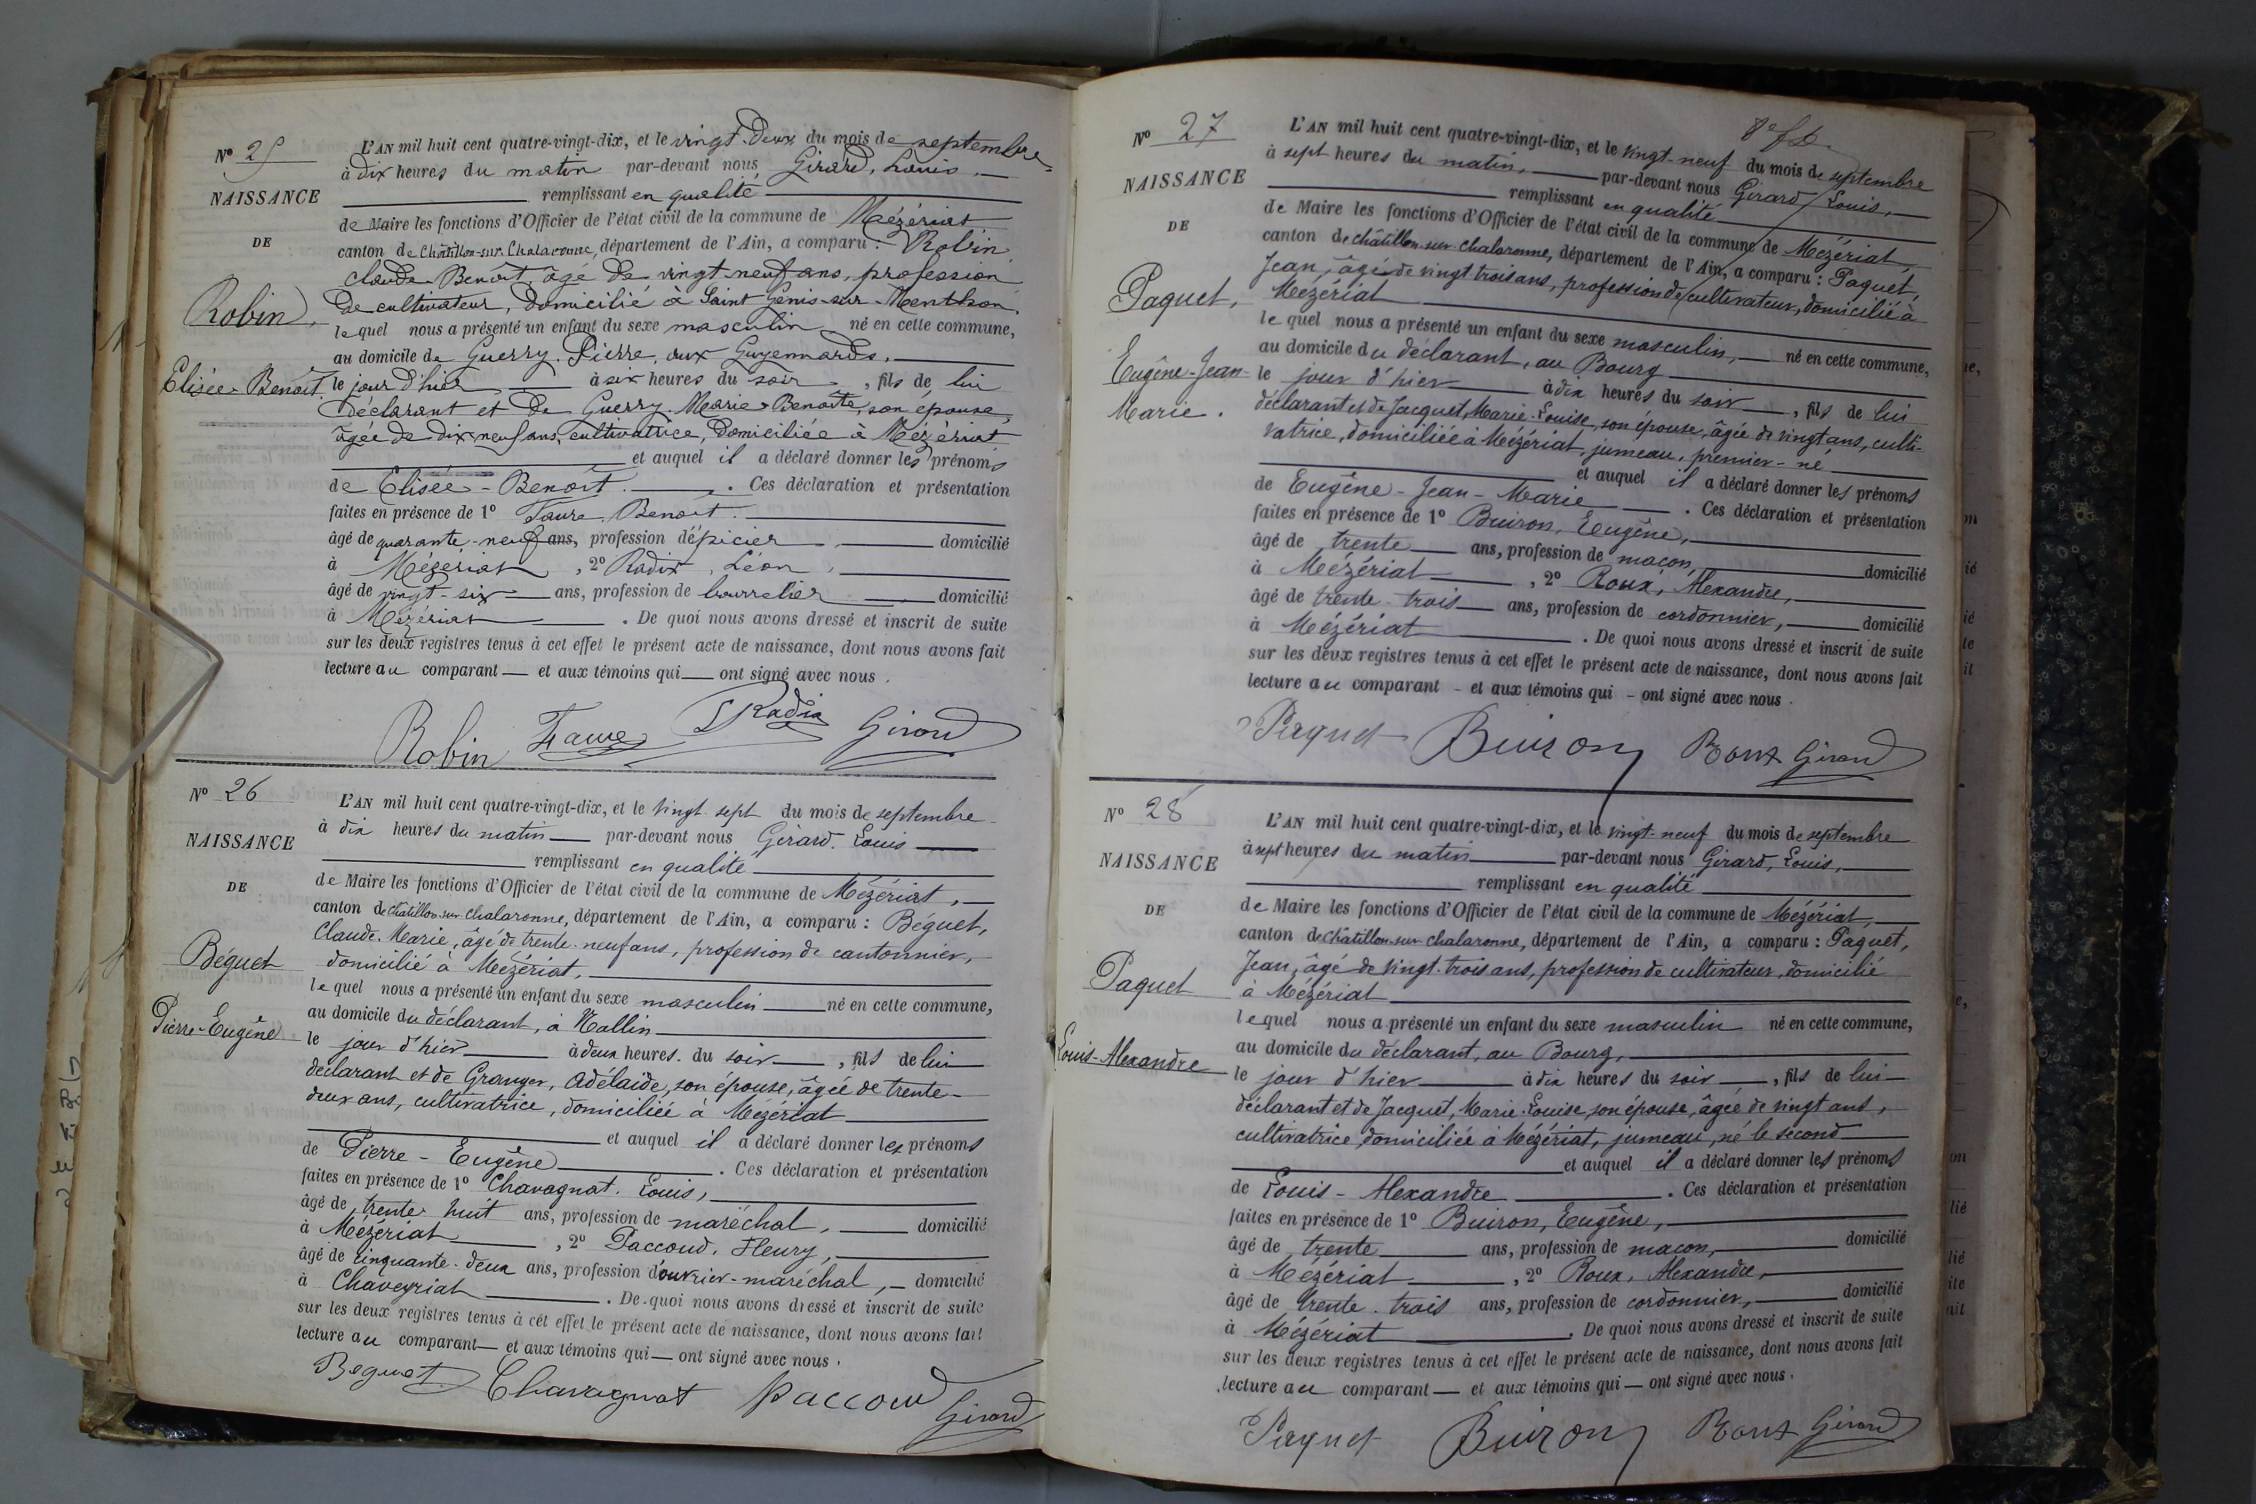 N° 25
NAISSANCE
DE
Robin,
Elisée-Benoit.
L'AN mil huit cent quatre-vingt-dix, et le vingt-deux du mois de septembre
à dix heures du matin par-devant nous Girard, Louis,
remplissant en qualité
de Maire les fonctions d'Officier de l'état civil de la commune de Mézériat
canton de Châtillon-sur-Chalaronne, département de l'Ain, a comparu : Robin
Claude-Benoît, âgé de vingt-neuf ans, profession
de cultivateur, domicilié à Saint Genis-sur-Menthon,
lequel nous a présenté un enfant du sexe masculin né en cette commune,
au domicile de Guerry, Pierre, aux Guyennards,
le jour d'hier à six heures du soir, fils de lui
déclarant et de Guerry, Marie-Benoîte, son épouse,
âgée de dix-neuf ans, cultivatrice, domiciliée à Mézériat
et auquel il a déclaré donner les prénoms
de Elisée-Benoît. Ces déclaration et présentation
faites en présence de 1° Faure, Benoît.
âgé de quarante-neuf ans, profession d'épicier, domicilié
à Mézériat, 2° Radix, Léon,
âgé de vingt-six ans, profession de bourrelier domicilié
à Mézériat. De quoi nous avons dressé et inscrit de suite
sur les deux registres tenus à cet effet le présent acte de naissance, dont nous avons fait
lecture au comparant et aux témoins qui ont signé avec nous.
Robin Faure L Radix Girard
N° 26
NAISSANCE
DE
Béguet
Pierre-Eugène
L'AN mil huit cent quatre-vingt-dix, et le vingt sept du mois de septembre
à dix heures du matin par-devant nous Girard, Louis
remplissant en qualité
de Maire les fonctions d'Officier de l'état civil de la commune de Mézériat,
canton de Châtillon-sur-Chalaronne, département de l'Ain, a comparu : Béguet,
Claude-Marie, âgé de trente-neuf ans, profession de cantonnier,
domicilié à Mézériat,
lequel nous a présenté un enfant du sexe masculin né en cette commune,
au domicile du déclarant, à
le jour d'hier à deux heures du soir, fils de lui
déclarant et de Granger, Adélaïde, son épouse, âgée de trente-
deux ans, cultivatrice, domiciliée à Mézériat
et auquel il a déclaré donner les prénoms
de Pierre-Eugène. Ces déclaration et présentation
faites en présence de 1° Chavagnat, Louis,
âgé de trente-huit ans, profession de maréchal, domicilié
à Mézériat, 2° Paccoud, Fleury,
âgé de cinquante-deux ans, profession d'ouvrier-maréchal, domicilié
à Chaveyriat. De quoi nous avons dressé et inscrit de suite
sur les deux registres tenus à cet effet le présent acte de naissance, dont nous avons fait
lecture au comparant et aux témoins qui ont signé avec nous.
Beguet Chavagnat Paccoud Girard
N° 27
NAISSANCE
DE
Paquet,
Eugène-Jean-
Marie.
L'AN mil huit cent quatre-vingt-dix, et le vingt-neuf du mois de septembre
à sept heures du matin, par-devant nous Girard, Louis,
remplissant en qualité
de Maire les fonctions d'Officier de l'état civil de la commune de Mézériat,
canton de Châtillon-sur-Chalaronne, département de l'Ain, a comparu : Paquet,
Jean, âgé de vingt-trois ans, profession de cultivateur, domicilié à
Mézériat
lequel nous a présenté un enfant du sexe masculin, né en cette commune,
au domicile du déclarant, au Bourg
le jour d'hier à dix heures du soir, fils de lui
déclarant et de Jacquet, Marie-Louise, son épouse, âgée de vingt ans, culti-
vatrice, domiciliée à Mézériat, jumeau, premier-né
et auquel il a déclaré donner les prénoms
de Eugène-Jean-Marie. Ces déclaration et présentation
faites en présence de 1° Buiron, Eugène,
âgé de trente ans, profession de maçon, domicilié
à Mézériat, 2° Roux, Alexandre,
âgé de trente-trois ans, profession de cordonnier, domicilié
à Mézériat. De quoi nous avons dressé et inscrit de suite
sur les deux registres tenus à cet effet le présent acte de naissance, dont nous avons fait
lecture au comparant et aux témoins qui ont signé avec nous.
Paquet Buiron Roux Girard
N° 28
NAISSANCE
DE
Paquet
Louis-Alexandre
L'AN mil huit cent quatre-vingt-dix, et le vingt-neuf du mois de septembre
à sept heures du matin par-devant nous Girard, Louis,
remplissant en qualité
de Maire les fonctions d'Officier de l'état civil de la commune de Mézériat,
canton de Châtillon-sur-Chalaronne, département de l'Ain, a comparu : Paquet,
Jean, âgé de vingt-trois ans, profession de cultivateur, domicilié
à Mézériat
lequel nous a présenté un enfant du sexe masculin né en cette commune,
au domicile du déclarant, au Bourg,
le jour d'hier à dix heures du soir, fils de lui
déclarant et de Jacquet, Marie-Louise, son épouse, âgée de vingt ans,
cultivatrice, domiciliée à Mézériat, jumeau, né le second
et auquel il a déclaré donner les prénoms
de Louis-Alexandre. Ces déclaration et présentation
faites en présence de 1° Buiron, Eugène,
âgé de trente ans, profession de maçon, domicilié
à Mézériat, 2° Roux, Alexandre,
âgé de trente-trois ans, profession de cordonnier, domicilié
à Mézériat. De quoi nous avons dressé et inscrit de suite
sur les deux registres tenus à cet effet le présent acte de naissance, dont nous avons fait
lecture au comparant et aux témoins qui ont signé avec nous.
Paquet Buiron Roux Girard